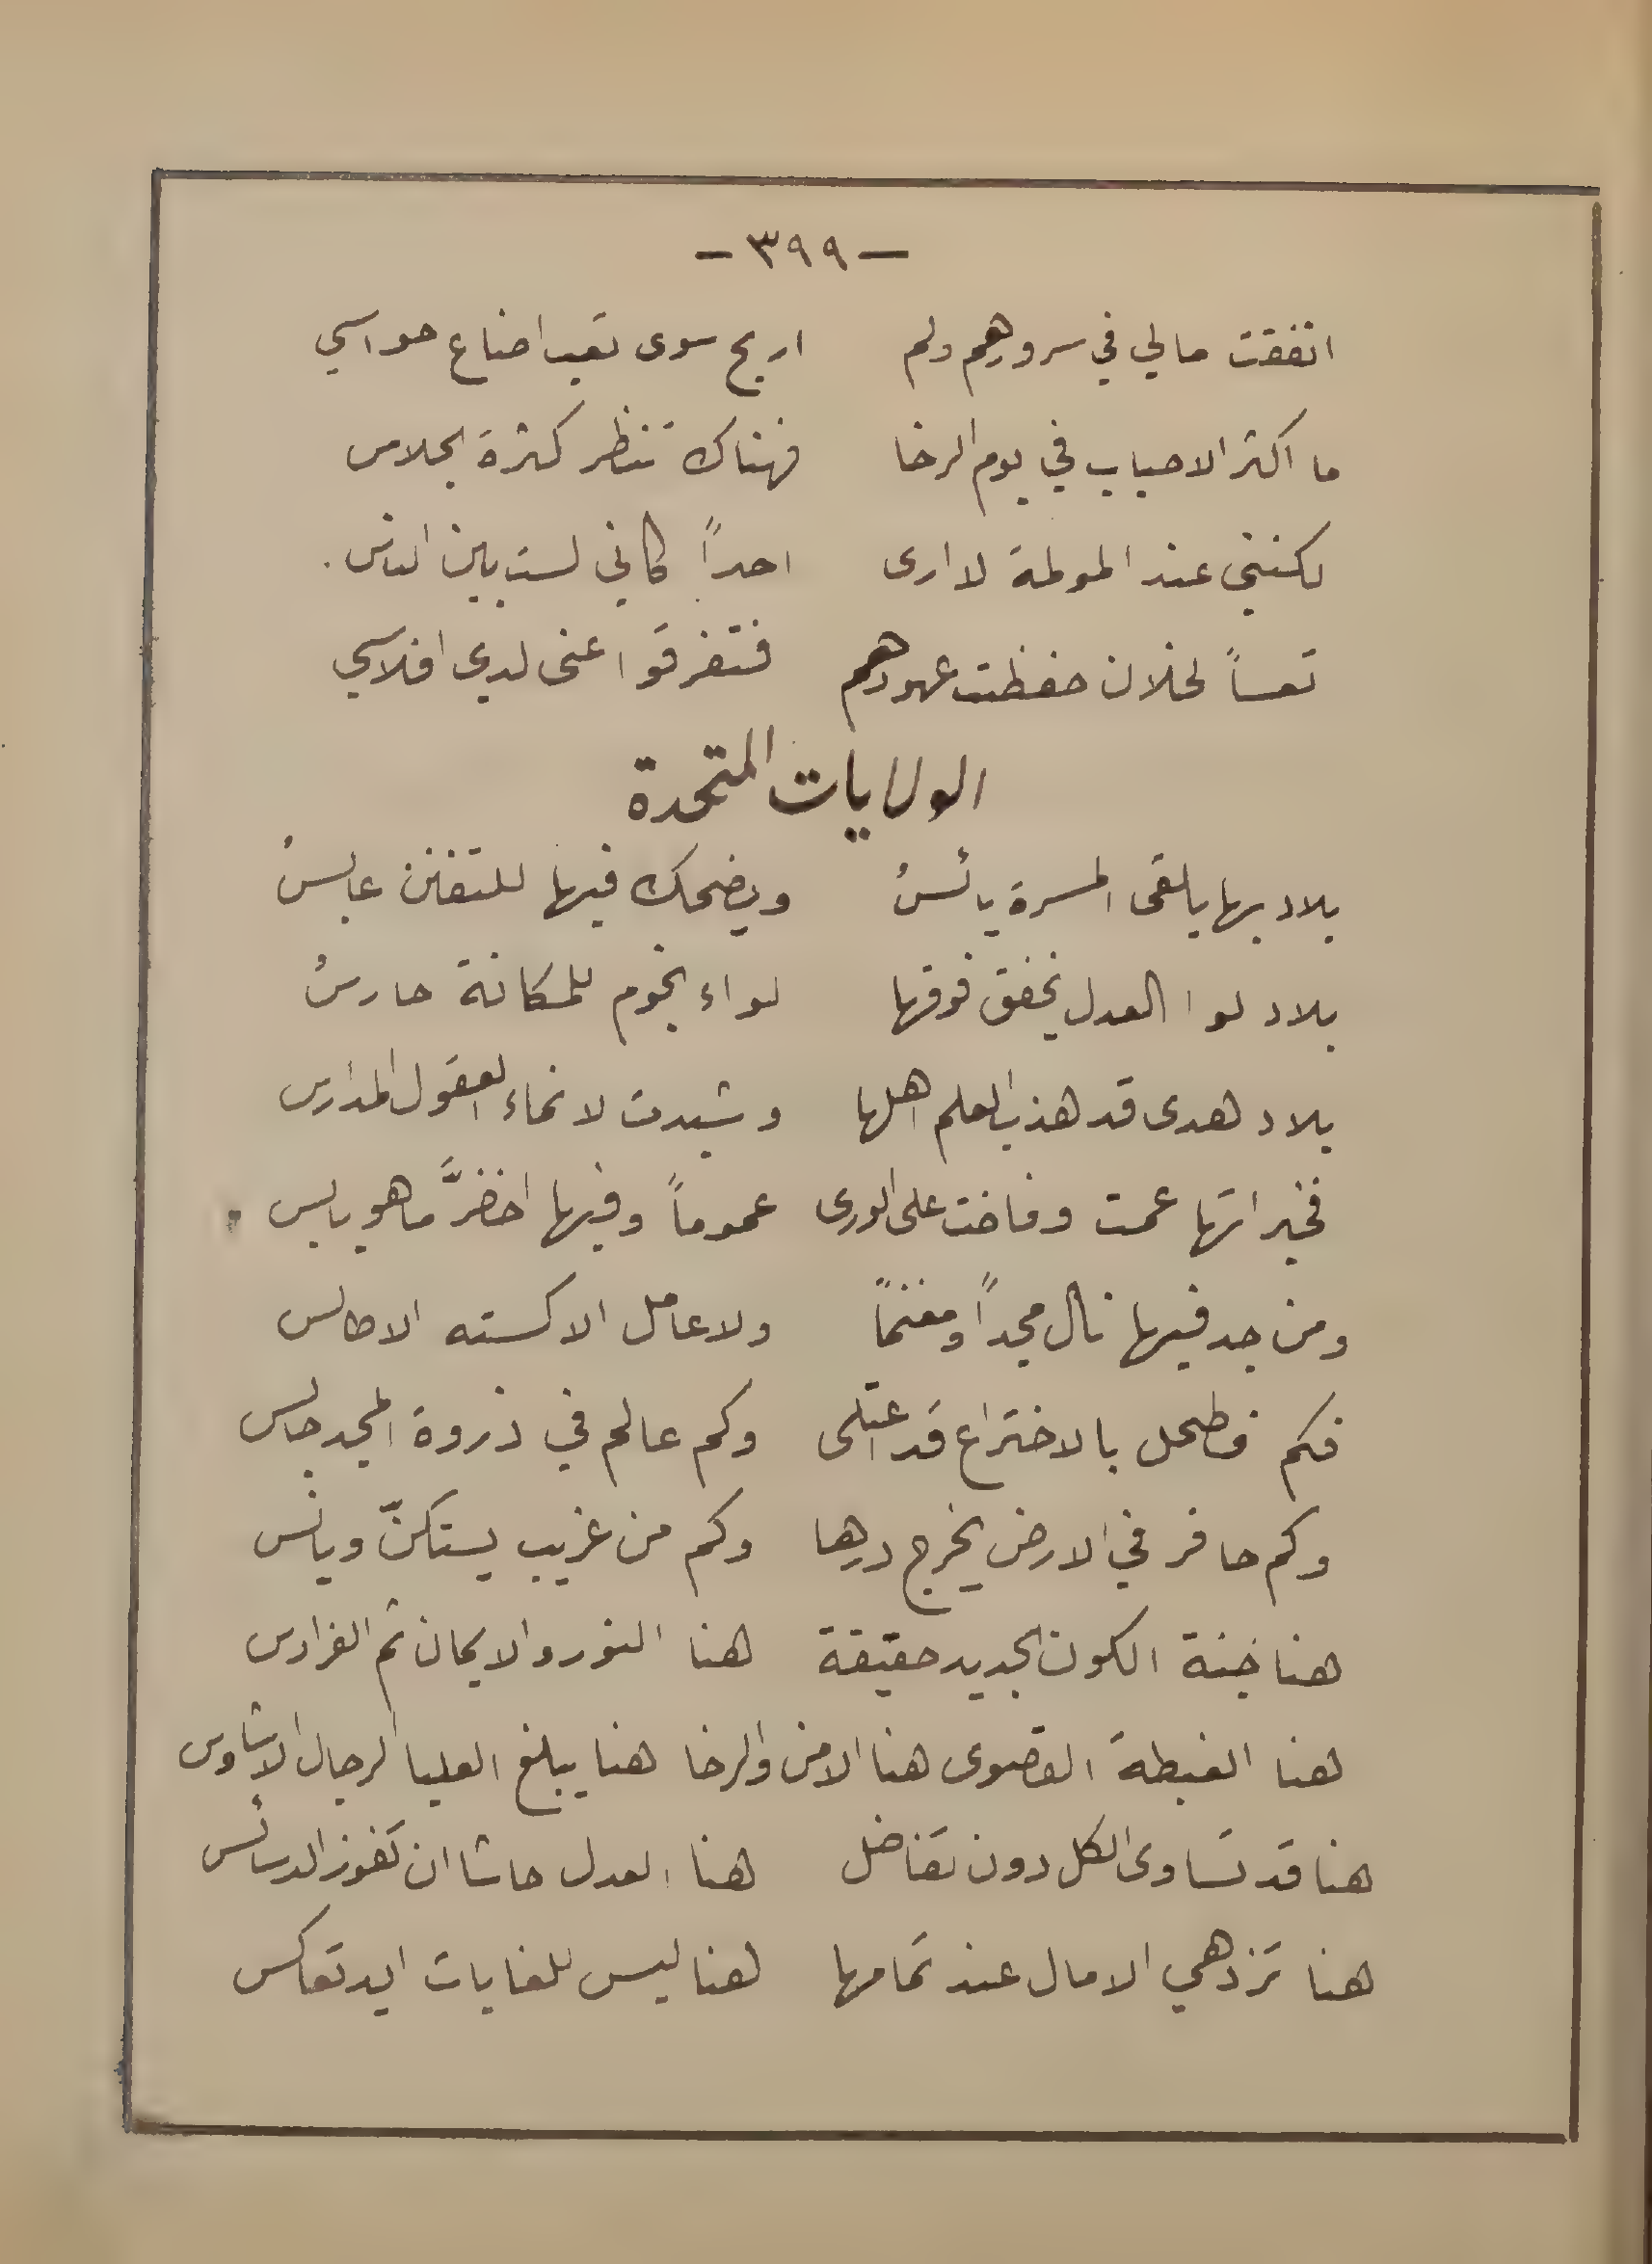 — ٣٩٩ —
انفقت مالي في سرورهم ولم اربح سوى تعب اضاع حواسي
ما اكثر الاحباب في يوم الرخا فهناك تنظر كثرة الجلاس
لكنني عند الملمة لا ارى احداً كأني لست بين الناس .
تعساً لخلان حفظت عهودهم فتفرقوا عني لدى افلاسي
الولايات المتحدة
بلاد بها يلقى المسرة يائسُ ويضحك فيها للتفنن عابسُ
بلاد لوا العدل يخفق فوقها لواء نجوم للمكانة حارسُ
بلاد هدى قد هذب العلم اهلها وشيدت لانماء العقول المدارس
فخيراتها عمت وفاضت على الورى عموماً وفيها اخضرَّ ما هو يابس .
ومن جد فيها نال مجداً ومغنماً ولا عامل الا كسته الاطالس
فكم فطحل بالاختراع قد اعتلى وكم عالم في ذروة المجد جالس
وكم حافر في الارض يخرج درها وكم من غريب يستكنّ ويانس
هنا جنة الكون الجديد حقيقة هنا النور والايمان ثم الفرادس
هنا الغبطة القصوى هنا الامن والرخا هنا يبلغ العليا الرجال الاشاوس
هنا قد تساوى الكل دون تفاضل هنا العدل حاشا ان تفوز الدسائس
هنا تزدهي الامال عند تمامها هنا ليس للغايات ايد تعاكس